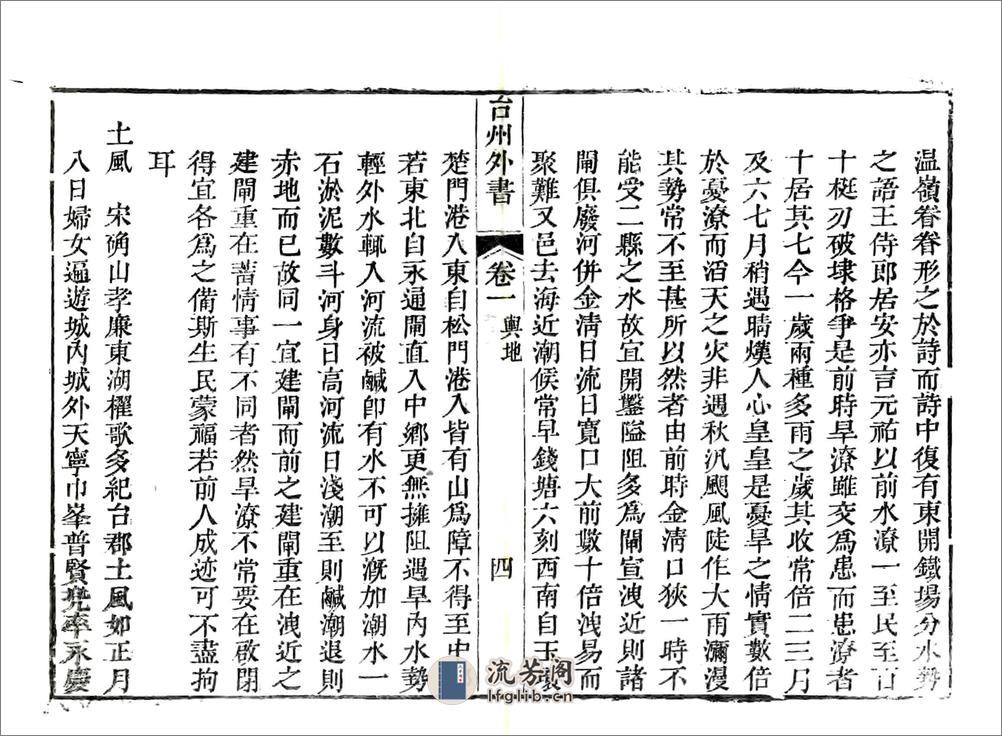 温嶺眷眷形之於詩而詩中復有東開鐵場分水勢
之語王侍郎居安亦言元祐以前水潦一至民至百
十梃刃破埭格爭是前時旱潦雖交爲患而患潦者
十居其七今一歲兩種多雨之歲其收常倍二三月
及六七月稍遇晴熯人心皇皇是憂旱之情實數倍
於憂潦而滔天之災非遇秋汛颶風陡作大雨瀰漫
其勢常不至甚所以然者由前時金淸口狹一時不
能受二縣之水故宜開鑿隘阻多爲閘宣洩近則諸
閘俱廢河併金淸日流日寬口大前數十倍洩易而
聚難又邑去海近潮候常早錢塘六刻西南自玉環
台州外書
卷一
輿地
四
楚門港入東自松門港入皆有山爲障不得至中
若東北自永通閘直入中鄉更無擁阻遇旱內水勢
輕外水輒入河流被鹹卽有水不可以漑加潮水一
石淤泥數斗河身日高河流日淺潮至則鹹潮退則
赤地而已故同一宜建閘而前之建閘重在洩近之
建閘重在蓄情事有不同者然旱潦不常要在啟閉
得宜各爲之備斯生民蒙福若前人成迹可不盡拘
耳
土風　宋确山孝廉東湖櫂歌多紀台郡土風如正月
八日婦女遍遊城內城外天寧巾峯普賢兜率永慶
流芳阁
lfglib.com